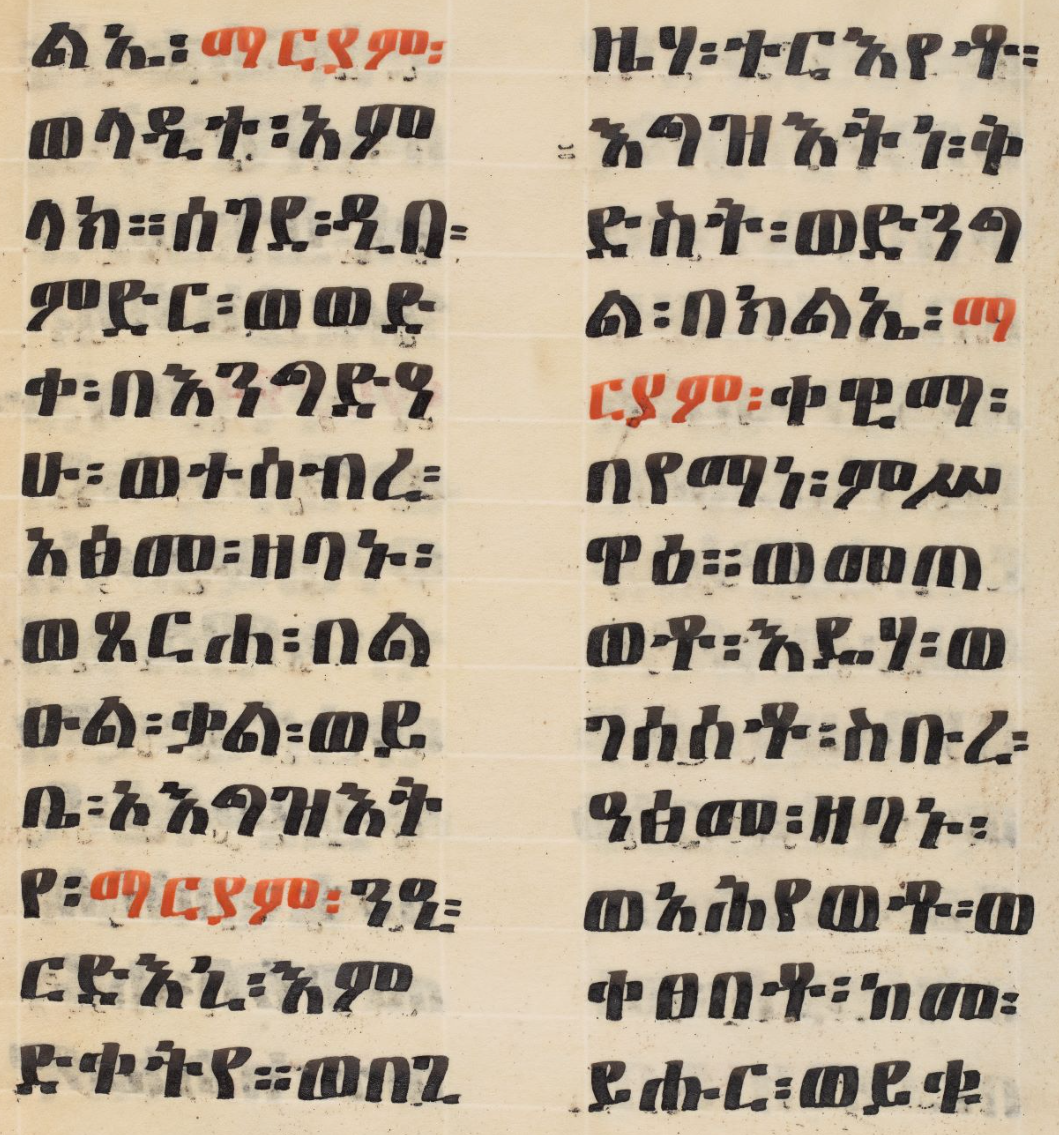 ልኤ፡ማርያም፡
ወላዲተ፡አም
ላክ።ሰገደ፡ዲበ፡
ምድር፡ወወድ
ቀ፡በእንግድዓ
ሁ፡ወተሰብረ፡
አፅመ፡ዘባኑ፡
ወጸርሐ፡በል
ዑል፡ቃል፡ወይ
ቤ፡ኦእግዝእት
የ፡ማርያም፡ንዒ፡
ርድእኒ፡እም
ድቀትየ።ወበጊ
ዜሃ፡ተርእየቶ፡
እግዝእትነ፡ቅ
ድስት፡ወድንግ
ል፡በክልኤ፡ማ
ርያም፡ቀዊማ፡
በየማነ፡ምሥ
ዋዕ።ወመጠ
ወቶ፡እዴሃ፡ወ
ገሰሰቶ፡ስቡረ፡
ዓፅመ፡ዘባኑ፡
ወአሕየወቶ፡ወ
ቀፀበቶ፡ከመ፡
ይሑር፡ወይቁ